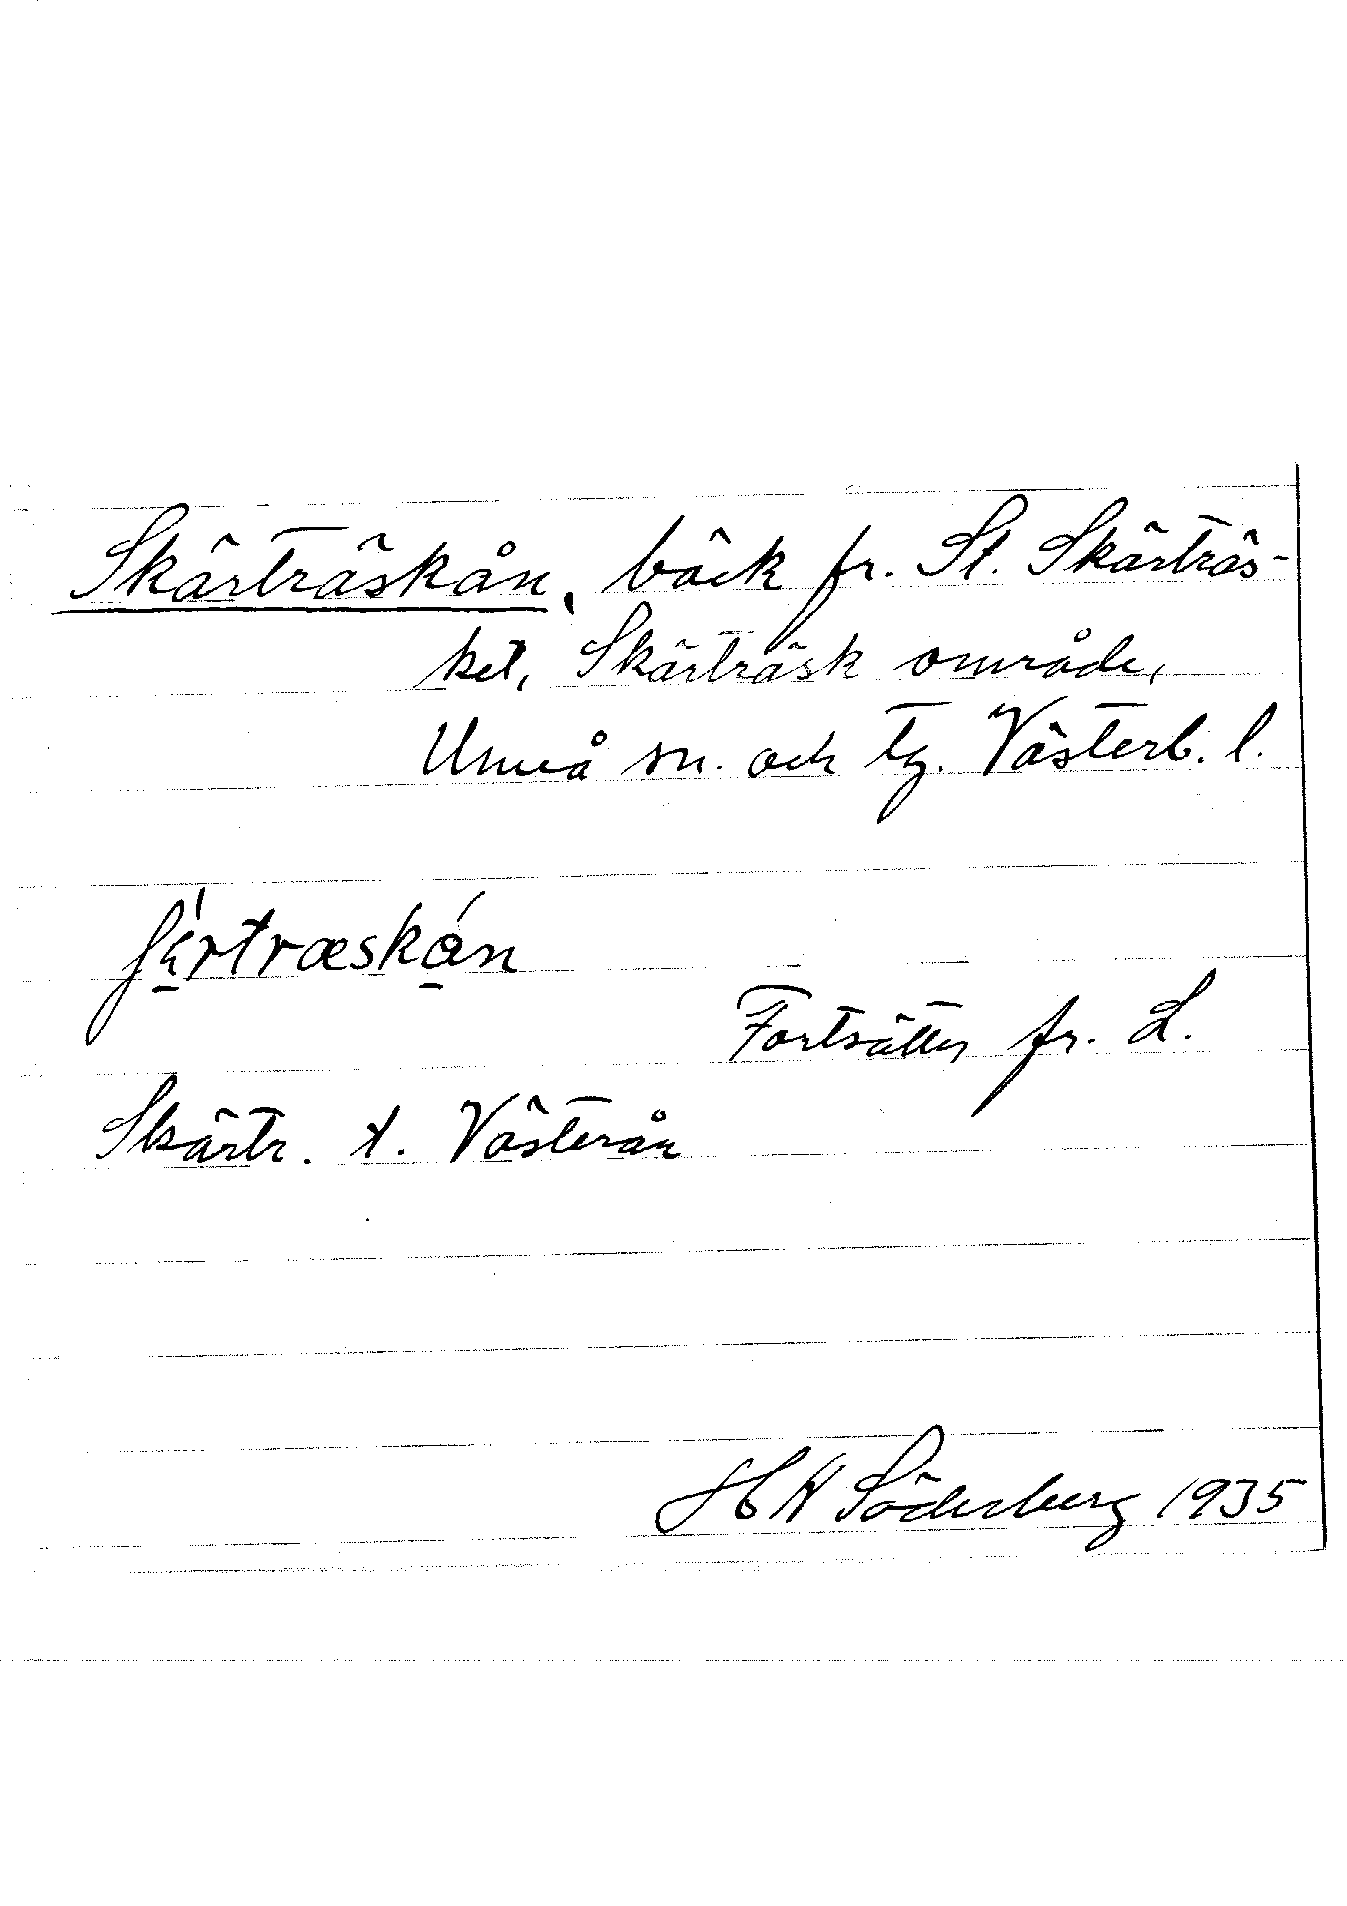 Skärträskån, bäck fr. St. Skärträs-
ket, Skärträsk område,
Umeå sn. och tg. Västerb. l.
Fortsätter fr. L.
Skärtr. t. Västerån
H W Söderberg 1935